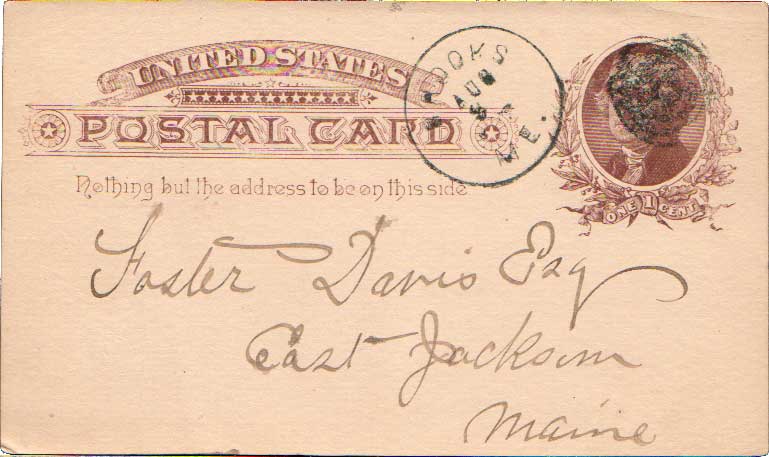 UNITED STATES
POSTAL CARD
Nothing but the address to be on this side
BROOKS
AUG
8
ME.
ONE 1 CENT
Foster Davis Esq
East Jackson
Maine